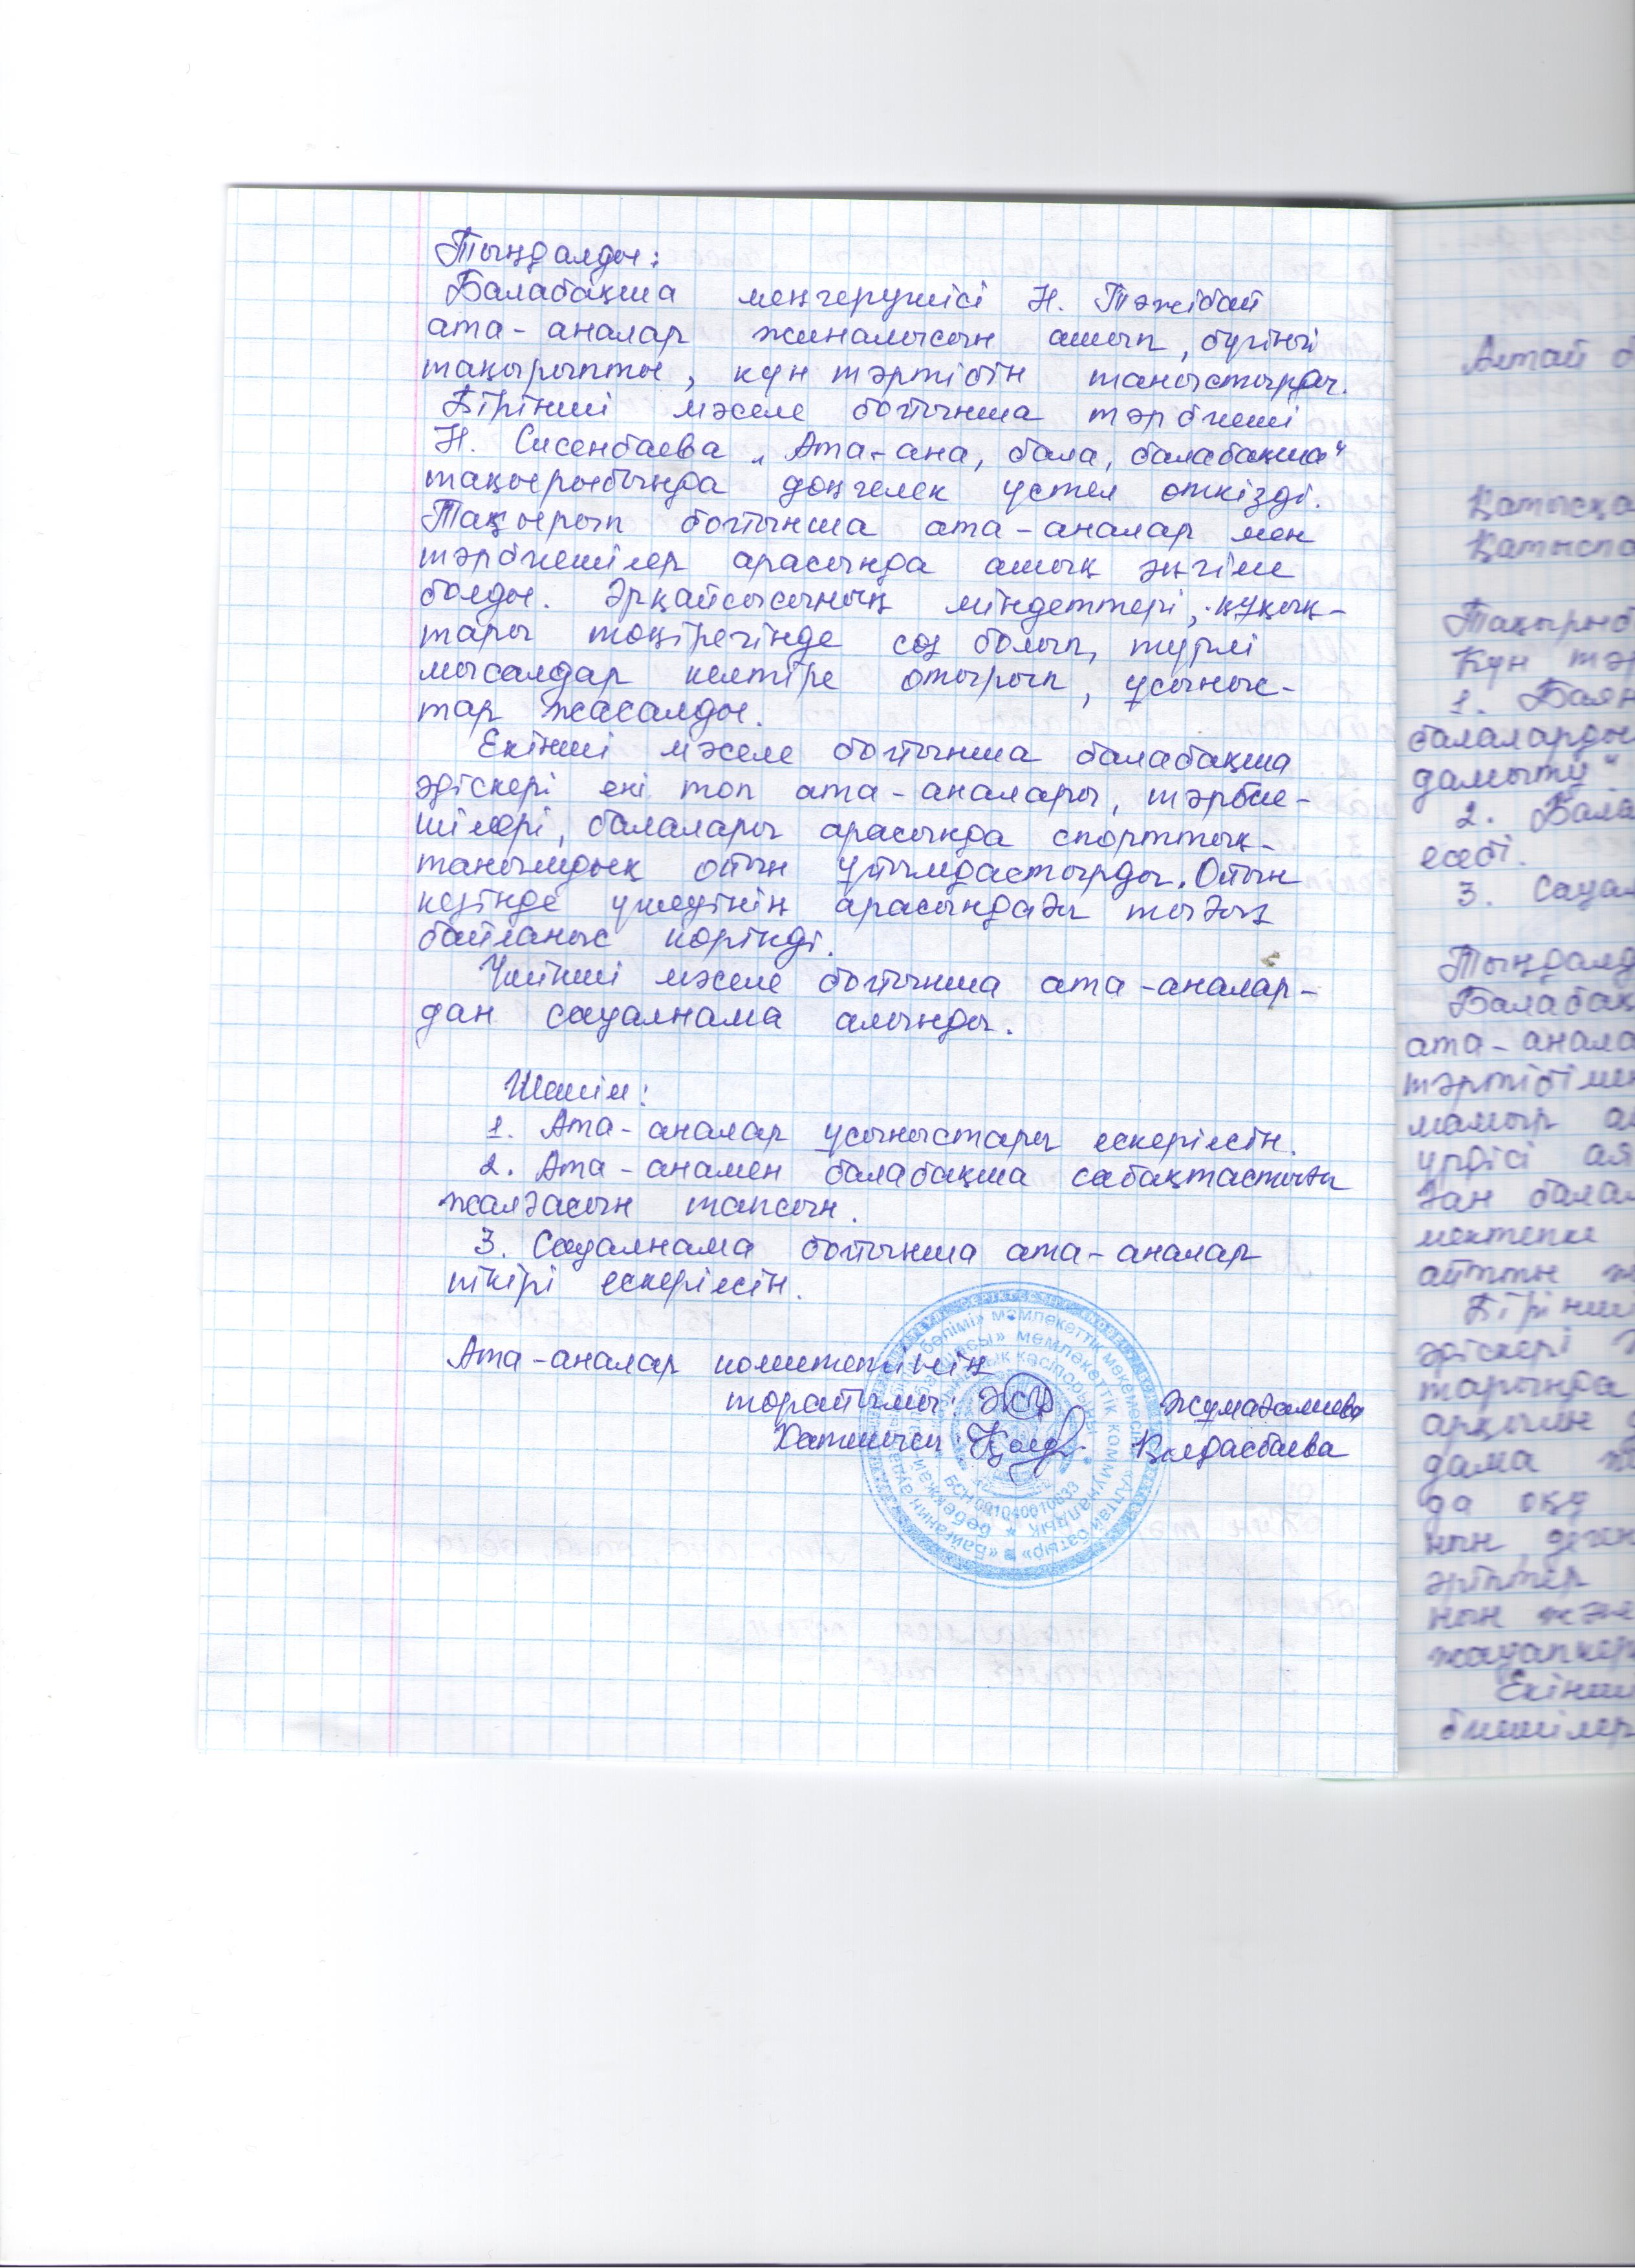 Тыңдалды:
Балабақша меңгерушісі Н. Тәжібай
ата-аналар жиналысын ашып, бүгінгі
тақырыпты, күн тәртібін таныстырды.
Бірінші мәселе бойынша тәрбиеші
Н. Сисенбаева „Ата-ана, бала, балабақша"
тақырыбында дөңгелек үстел өткізді.
Тақырып бойынша ата-аналар мен
тәрбиешілер арасында ашық әңгіме
болды. Әрқайсысының міндеттері, құқық-
тары төңірегінде сөз болып, түрлі
мысалдар келтіре отырып, ұсыныс-
тар жасалды.
Екінші мәселе бойынша балабақша
әдіскері екі топ ата-аналары, тәрбие-
шілері, балалары арасында спорттық-
танымдық ойын ұйымдастырды. Ойын
кезінде үшеуінің арасындағы тығыз
байланыс көрінді.
Үшінші мәселе бойынша ата-аналар-
дан сауалнама алынды.
Шешім:
1. Ата-аналар ұсыныстары ескерілсін.
2. Ата-анамен балабақша сабақтастығы
жалғасын тапсын.
3. Сауалнама бойынша ата-аналар
пікірі ескерілсін.
Ата-аналар комитетінің
төрайымы: Жумагалиева
Хатшысы: Қалдасбаева
бөлімі» мемлекеттік мекемесінің «Алтай батыр»
мемлекеттік коммуналдық
кәсіпорны
«Байғанин ауданы
бөбекжай
БСН 091040010033
Алтай б
Қатысқа
Қатыспа
Тақырыб
Күн тәр
1. Баян
балаларды
дамыту"
2. Бала
есебі.
3. Сауал
Тыңдалд
Балабақ
ата-анала
тәртібімен
мамыр а
үрдісі ая
ған балал
мектепке
айтып ж
Бірінші
әдіскері
тарында
арқылы
дама
да оқу
нын деген
әріптер
нын және
жауапкер
Екінші
биешілер